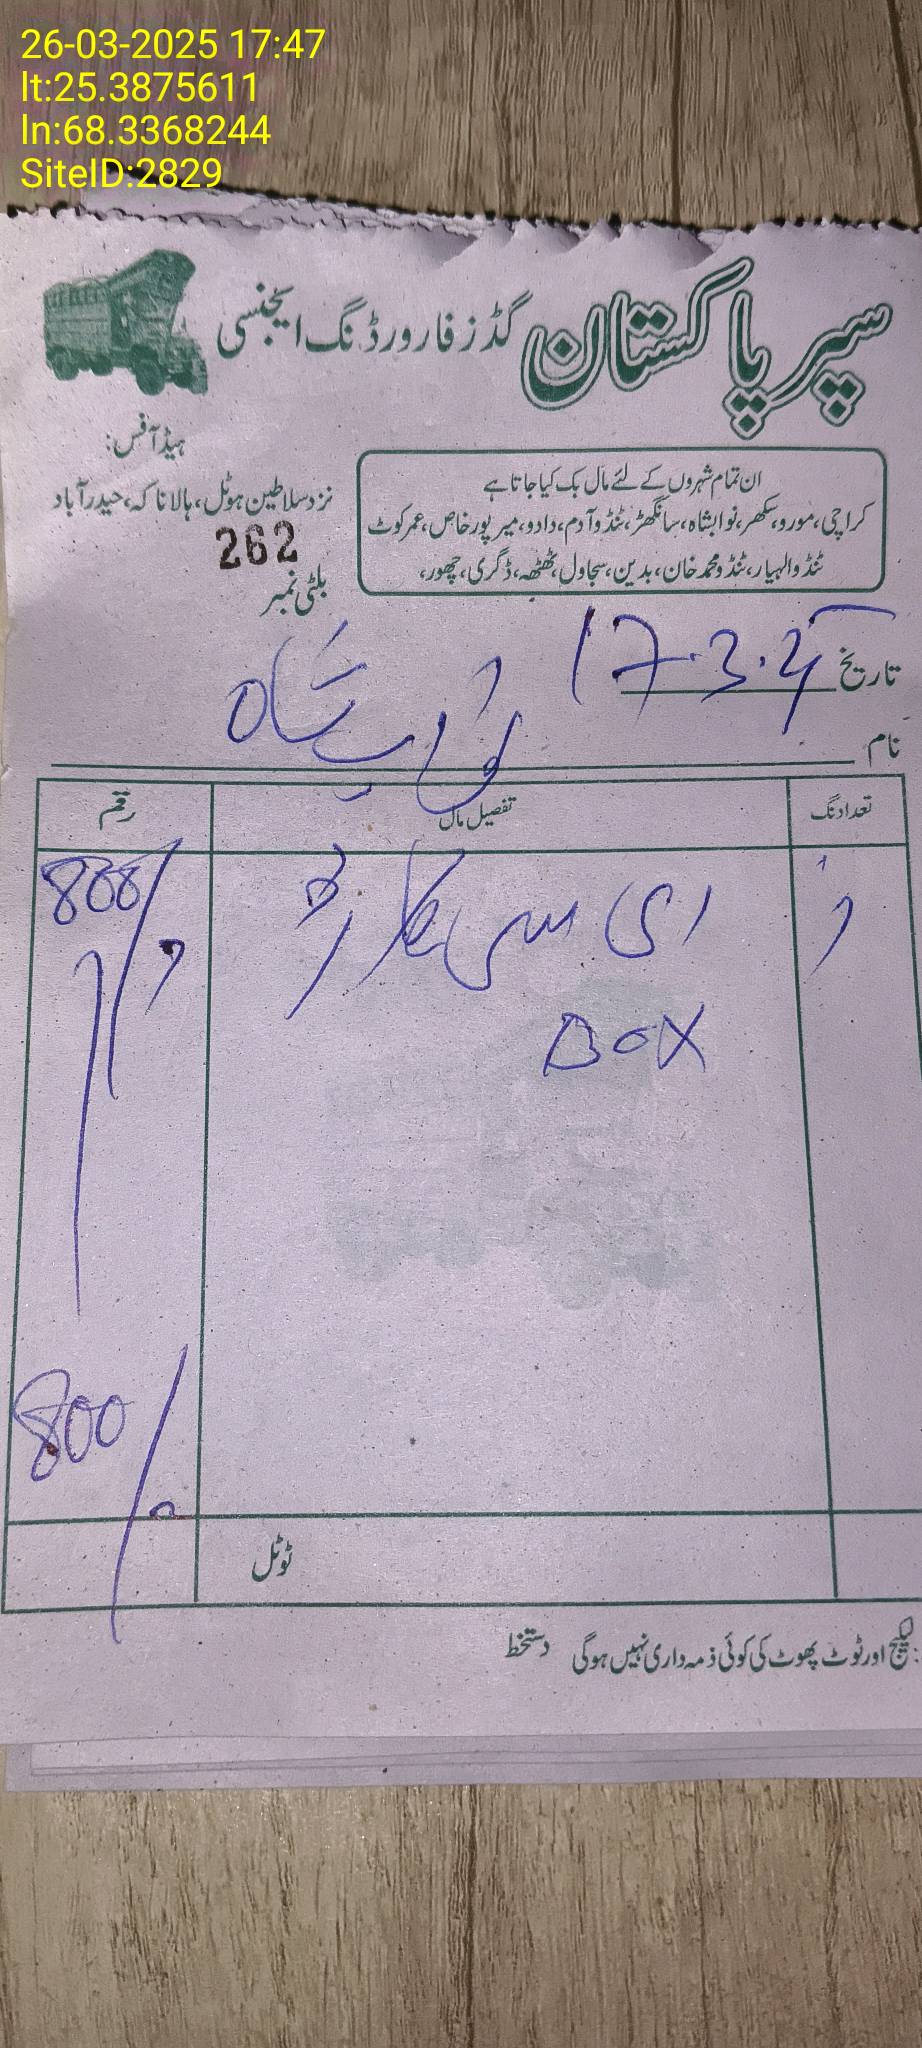 26-03-2025 17:47
lt:25.3875611
ln:68.3368244
SiteID:2829
سپر پاکستان گڈز فارورڈنگ ایجنسی
ہیڈ آفس:
نزد سلاطین ہوٹل، ہالا ناکہ، حیدرآباد
ان تمام شہروں کے لئے مال بک کیا جاتا ہے
کراچی، مورو، سکھر، نوابشاہ، سانگھڑ، ٹنڈو آدم، دادو، میرپور خاص، عمرکوٹ
ٹنڈوالہیار، ٹنڈو محمد خان، بدین، سجاول، ٹھٹھہ، ڈگری، چھور،
262
بلٹی نمبر
تاریخ 17.3.25
نواب شاہ
نام
تعداد نگ تفصیل مال رقم
ای سی کارڈ 800/
BOX
800/
ٹوٹل
لیکج اور ٹوٹ پھوٹ کی کوئی ذمہ داری نہیں ہوگی دستخط